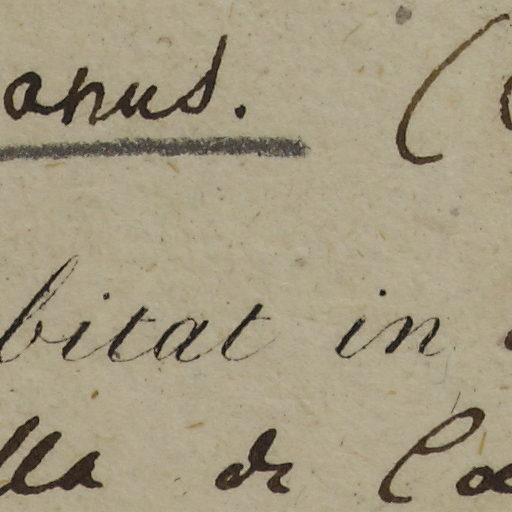 anus. (
bitat in
lla de Co